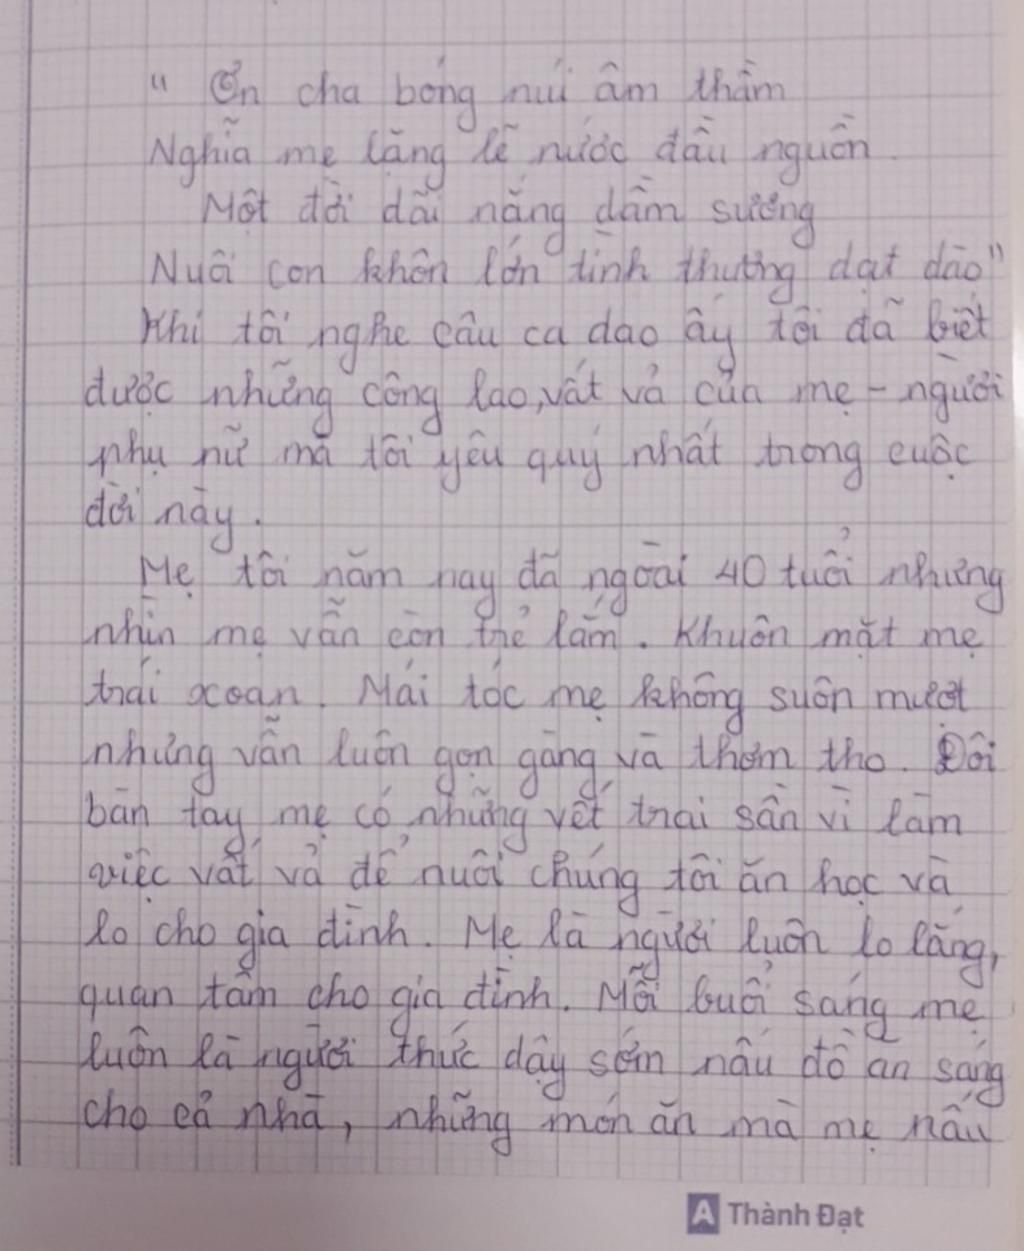 " Ơn cha bóng núi âm thầm
Nghĩa mẹ lặng lẽ nước đầu nguồn.
Một đời dãi nắng dầm sương
Nuôi con khôn lớn tình thương dạt dào"
Khi tôi nghe câu ca dao ấy tôi đã biết
được những công lao, vất vả của mẹ - người
phụ nữ mà tôi yêu quý nhất trong cuộc
đời này.
Mẹ tôi năm nay đã ngoài 40 tuổi nhưng
nhìn mẹ vẫn còn trẻ lắm. Khuôn mặt mẹ
trái xoan. Mái tóc mẹ không suôn mượt
nhưng vẫn luôn gọn gàng và thơm tho. Đôi
bàn tay mẹ có những vết trai sần vì làm
việc vất vả để nuôi chúng tôi ăn học và
lo cho gia đình. Mẹ là người luôn lo lắng,
quan tâm cho gia đình. Mỗi buổi sáng mẹ
luôn là người thức dậy sớm nấu đồ an sáng
cho cả nhà, những món ăn mà mẹ nấu
A Thành Đạt